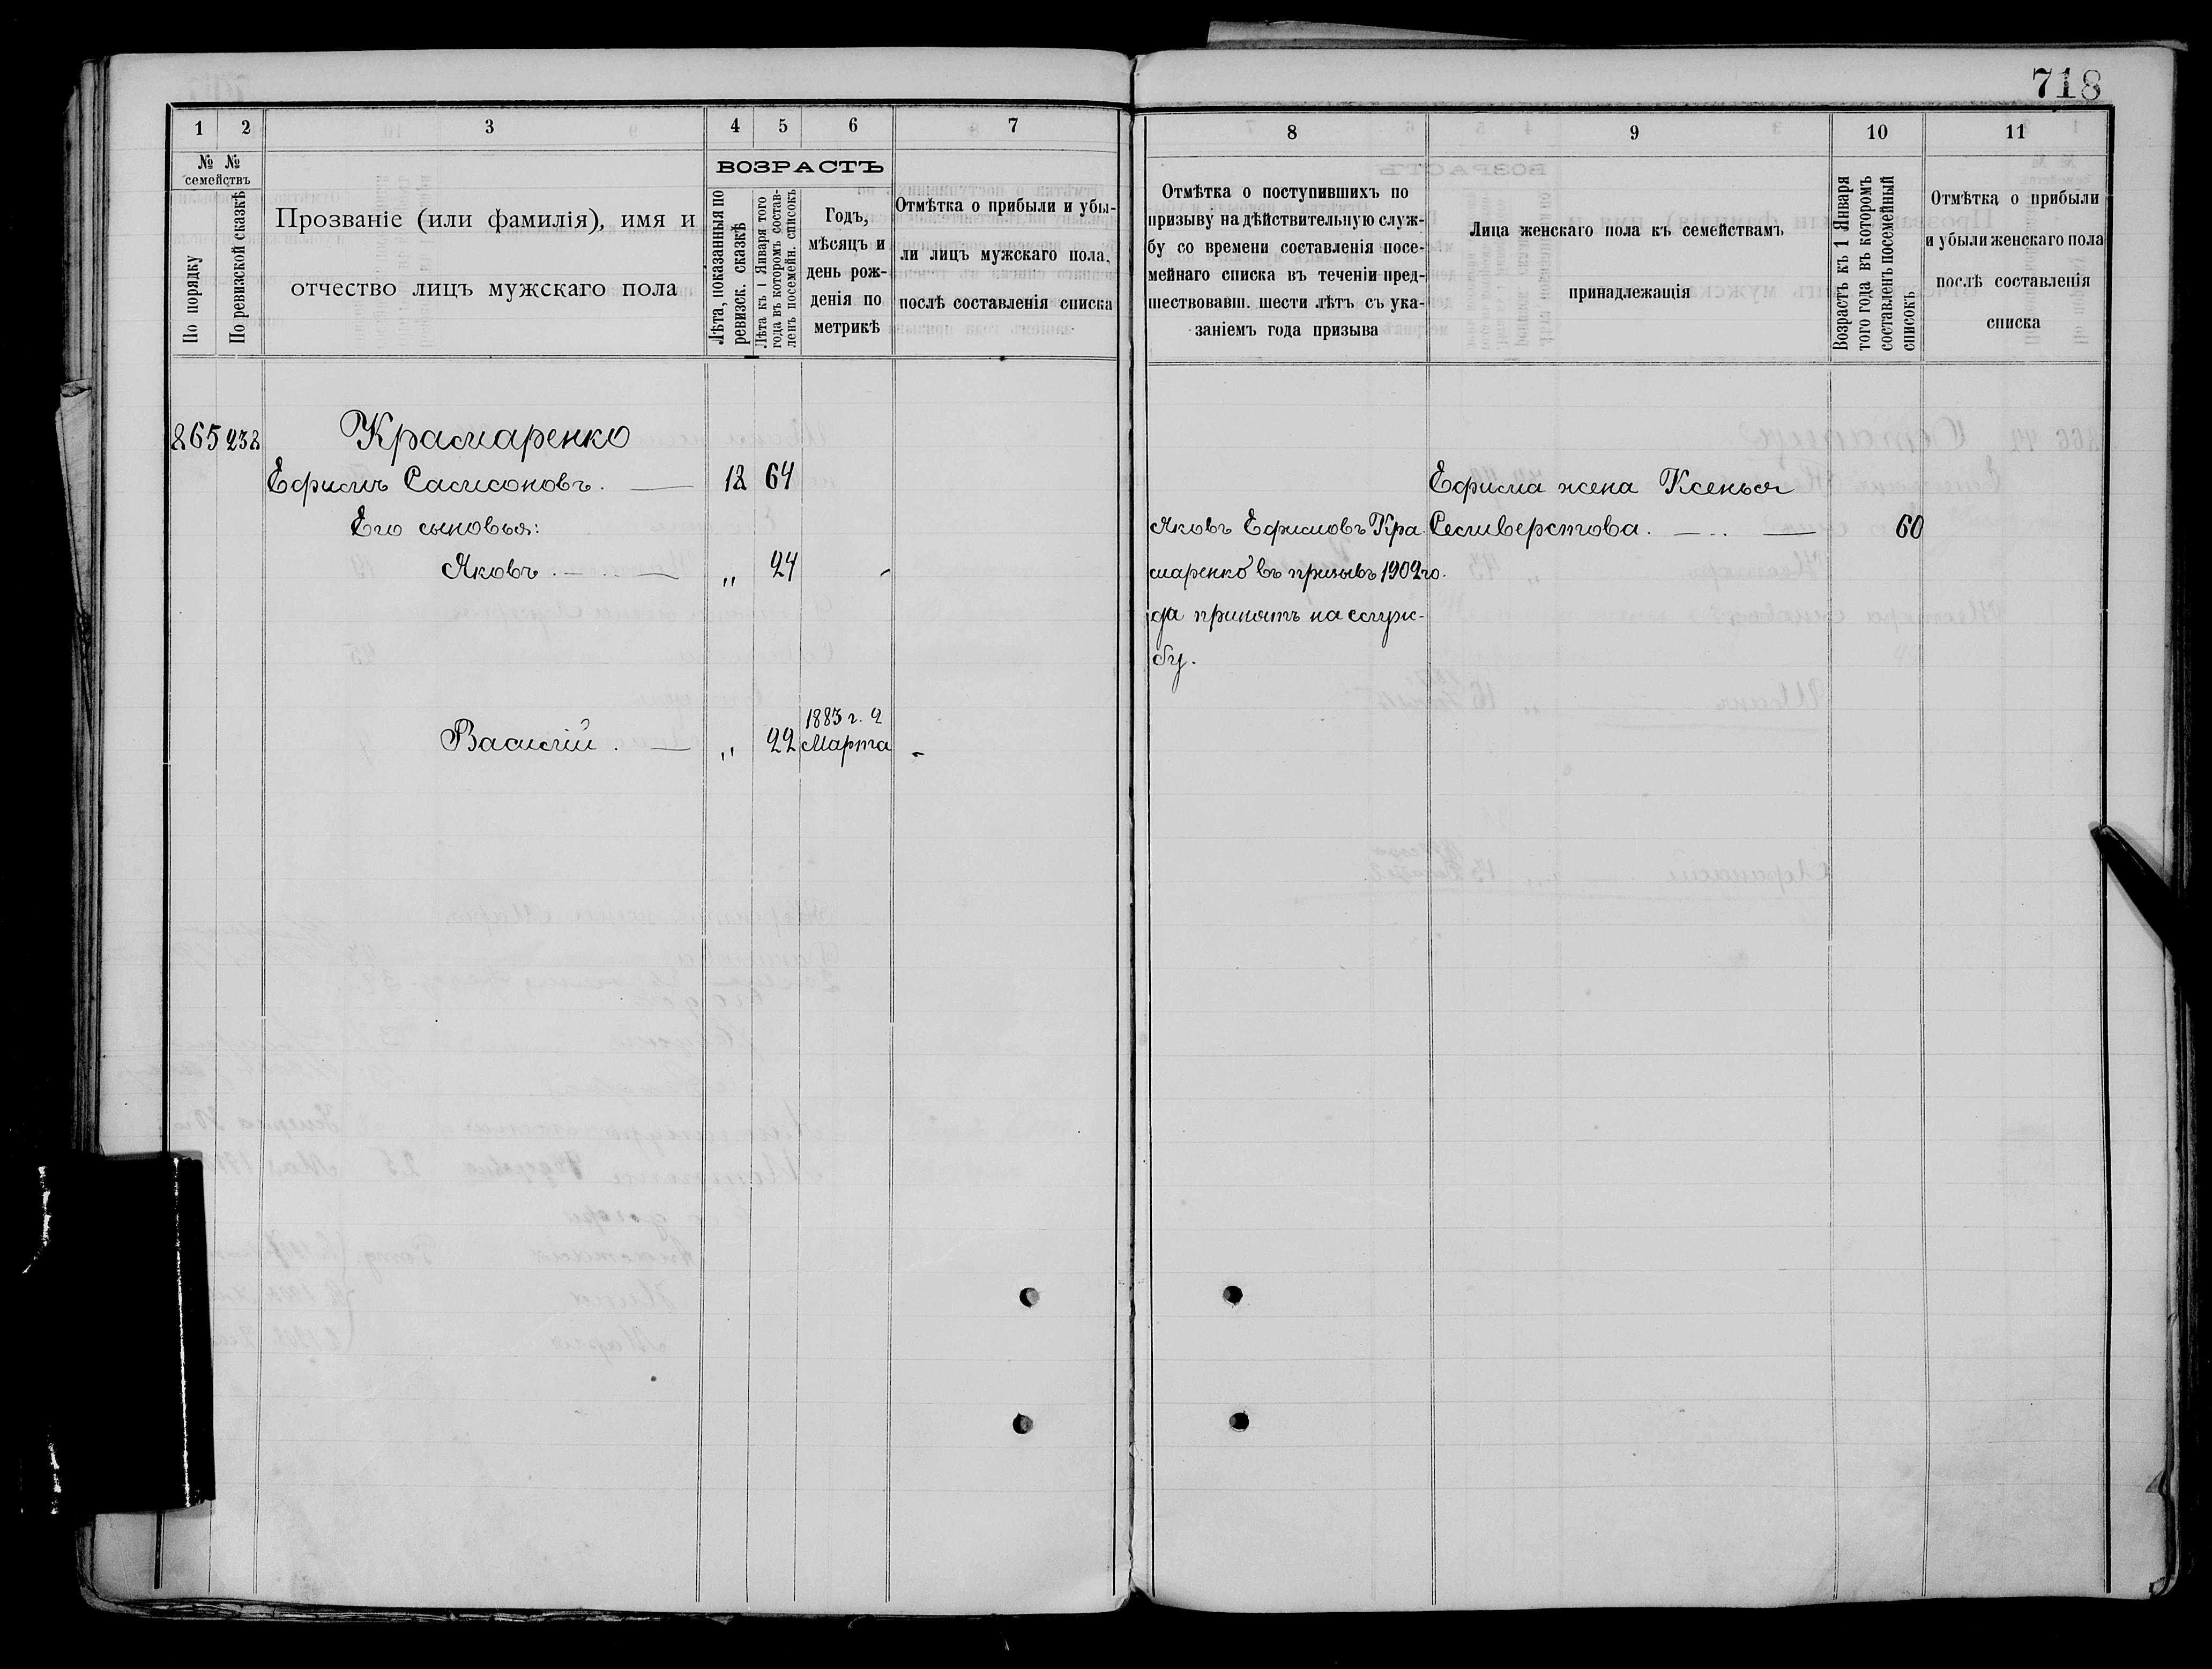 718
1 2 3 4 5 6 7
№ № семействъ
По порядку
По ревизской сказкѣ
Прозваніе (или фамилія), имя и
отчество лицъ мужскаго пола
ВОЗРАСТЪ
Лѣта, показанныя по
ревизск. сказкѣ
Лѣта къ 1 Января того
года въ которомъ состав-
ленъ посемейн. списокъ
Годъ,
мѣсяцъ и
день рож-
денія по
метрикѣ
Отмѣтка о прибыли и убы-
ли лицъ мужскаго пола,
послѣ составленія списка
8 9 10 11
Отмѣтка о поступившихъ по
призыву на дѣйствительную служ-
бу со времени составленія посе-
мейнаго списка въ теченіи пред-
шествовавш. шести лѣтъ съ ука-
заніемъ года призыва
Лица женскаго пола къ семействамъ
принадлежащія
Возрастъ къ 1 Января
того года въ которомъ
составленъ посемейный
списокъ
Отмѣтка о прибыли
и убыли женскаго пола
послѣ составленія
списка
865 238 Крамаренко
Ефимъ Самсоновъ. — 12 64
Его сыновья:
Яковъ . — . — „ 24
Василій . — „ 22 1883 г. 2 Марта
Яковъ Ефимовъ Кра
маренко въ призывъ 1902 го.
да принятъ на служ-
бу.
Ефима жена Ксенья
Селиверстова. — .. — 60